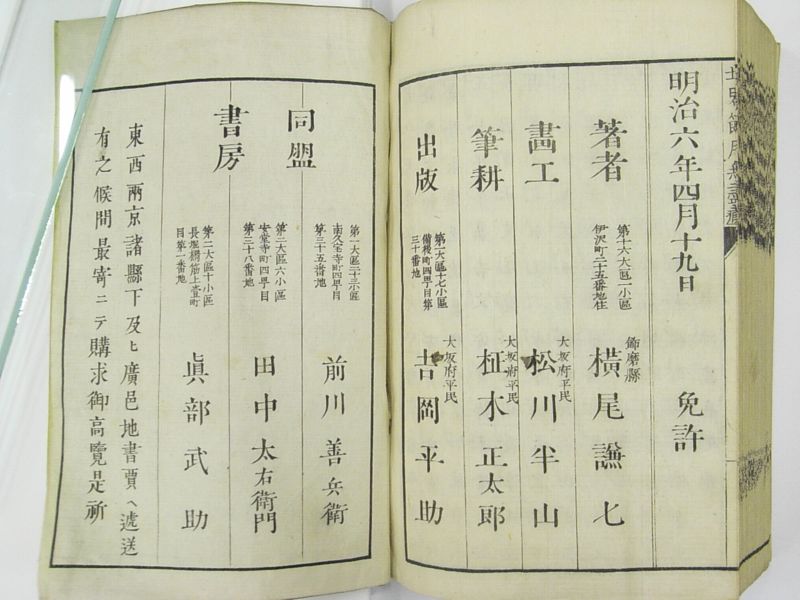 明治六年四月十九日 免許
著者
第十六大區一小區
伊沢町二十五番地住
飾磨縣
横尾謙七
畵工
大坂府平民
松川半山
筆耕
大坂府平民
柾木正太郎
出版
第一大區十七小區
備後町四丁目第
三十番地
大坂府平民
吉岡平助
同盟
書房
第一大區二十三小區
南久宝寺町四丁目
第三十五番地
前川善兵衛
第二大區六小區
安堂寺町四丁目
第三十八番地
田中太右衛門
第二大區十小區
長堀橋筋上壹町
目第一番地
眞部武助
東西兩京諸縣下及ヒ廣邑地書賈ヘ逓送
有之候間最寄ニテ購求御高覽是祈